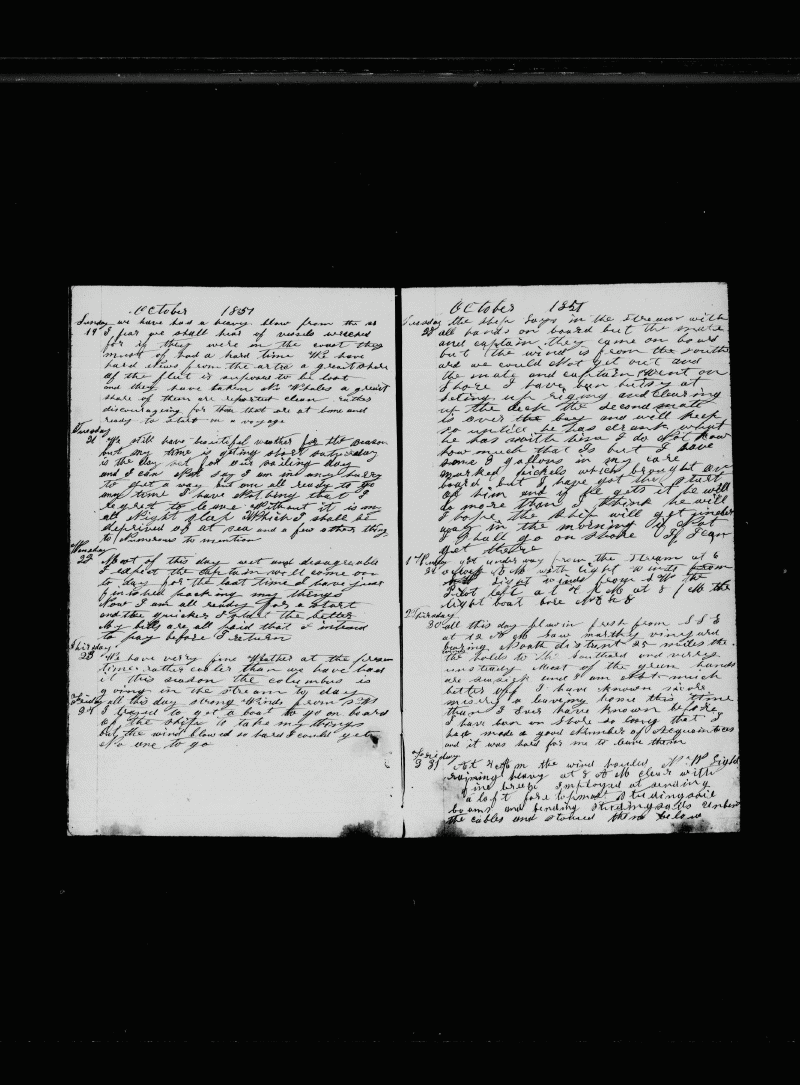 October 1851
Sunday we have had a heavy blow from the
19 I fear we shall hear of vessels wrecked
for if they were in the coast they
must of had a hard time We have
hard News from the artic a great share
of the fleet is suposed to be lost
and they have taken No Whales a great
share of them are reported clean rather
discouraging for those that are at home and
ready to start on a voyage
Tuesday
21 We still have beautiful weather for the season
but my time is geting short saturday
is the day set for our sailing day
and I can not say I am in any hurry
to get a way but am all ready to go
any time I have Nothing that I
regret to leave Without it is my
all Night sleap Which I shall be
deprived of at sea and a few other things
to Numerous to mention
22 Most of this day wet and disagreeable
I expect the captain will come on
to day for the last time I have just
finished packing my things
Now I am all ready for a start
and the quicker I start the better
My bills are all paid that I intend
to pay before I return
Thirsday
23 We have very fine Weather at the presen
time rather cooler than we have had
it this season the columbus is
going in the stream to day
Friday all this day strong Winds from
24 I tryed to get a boat to go on board
of the ship to take my things
but the wind blowed so hard I could get
No one to go
October 1851
Tuesday the ship Lays in the stream with
28 all hands on board but the mate
and captain they came on board
but the wind is from the south
ard we could Not get out and
the mate and captain Went on
shore I have bin buisy at
seting up riging and clearing
up the deck the second mate
is over the bay and will keep
so untill he has drunk what
he has with him I do Not know
how much that Is but I have
some 3 gallons in my care
marked pickels which brought on
board but I have got the start
of him and if he gets it he will
do more than I think he will
I hope the ship will get under
way in the morning If Not
I shall go on shore If I can
get there
1 got under way from the stream at 6
29 oclock A M with light winds
Light winds from S W the
Pilot left at P M at 8 P M the
Light boat bore
2 Thirsday
30 all this day plasin fresh from S S E
at 12 A M Saw marthy vineyard
bearing North distent 25 miles the
the holds to the Southard and verrys
unsteady Most of the green hands
are seasick and I am Not much
better off I have known
misery a leaving home this time
than I Ever have known before
I have been on shore so long that I
have made a good Number of Acquaintences
and it was hard for me to leave them
3 31 At A m the wind hauled N W Light
raining heavy at 8 A M clear with
fine breeze Employed at sending
a loft fore topmast studingsail
booms and bending studingsails unbent
the cables and stowed them below